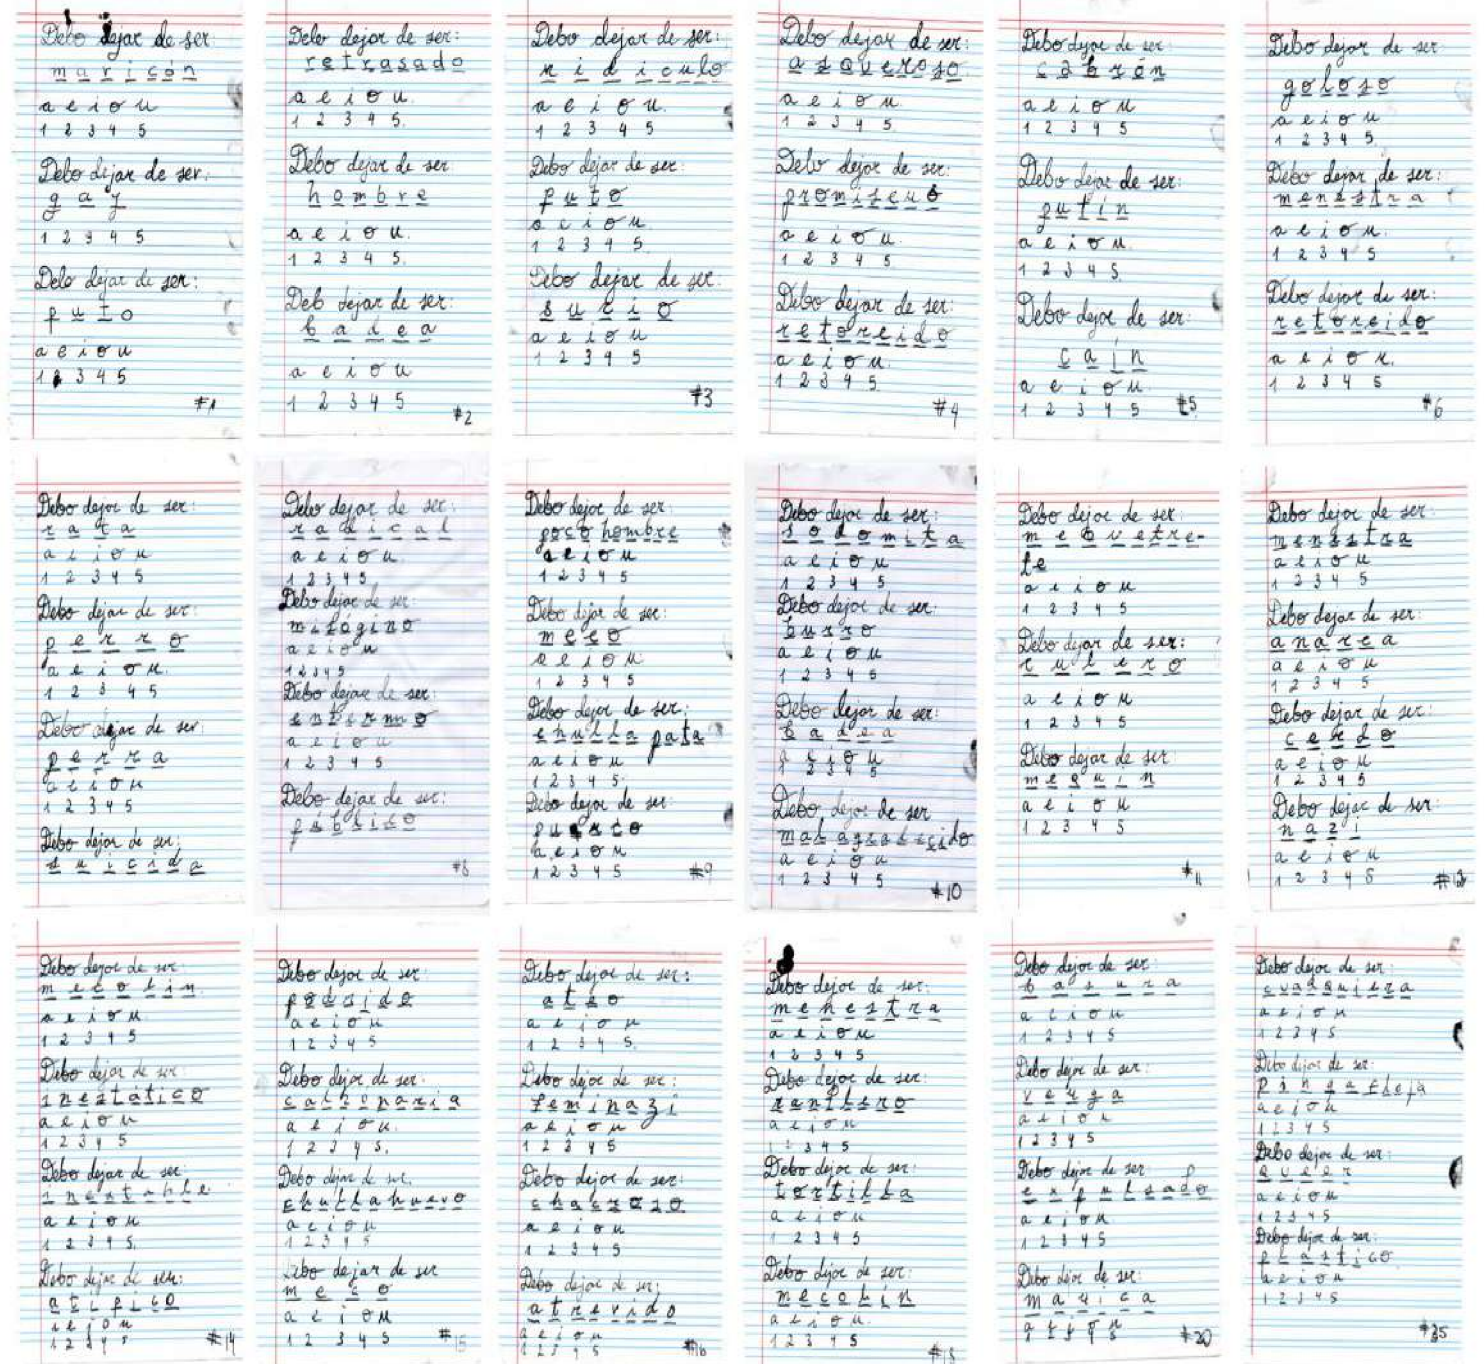 Debo dejar de ser:
maricón
a e i o u
1 2 3 4 5
Debo dejar de ser:
gay
1 2 3 4 5
Debo dejar de ser:
puto
a e i o u
1 2 3 4 5
#1
Debo dejar de ser:
retrasado
a e i o u.
1 2 3 4 5.
Debo dejar de ser:
hombre
a e i o u.
1 2 3 4 5.
Deb dejar de ser:
badea
a e i o u
1 2 3 4 5
#2
Debo dejar de ser:
ridiculo
a e i o u.
1 2 3 4 5
Debo dejar de ser:
puto
a e i o u.
1 2 3 4 5.
Debo dejar de ser:
sucio
a e i o u
1 2 3 4 5
#3
Debo dejar de ser:
asqueroso
a e i o u.
1 2 3 4 5.
Debo dejar de ser:
promiscuo
a e i o u.
1 2 3 4 5
Debo dejar de ser:
retorcido
a e i o u.
1 2 3 4 5.
#4
Debo dejar de ser:
cabrón
a e i o u
1 2 3 4 5
Debo dejar de ser:
putín
a e i o u.
1 2 3 4 5.
Debo dejar de ser:
caín
a e i o u.
1 2 3 4 5
#5
Debo dejar de ser
goloso
a e i o u
1 2 3 4 5.
Debo dejar de ser:
menestra
a e i o u.
1 2 3 4 5
Debo dejar de ser:
retorcido
a e i o u.
1 2 3 4 5
#6
Debo dejar de ser:
rara
a e i o u
1 2 3 4 5
Debo dejar de ser:
perro
a e i o u.
1 2 3 4 5
Debo dejar de ser:
perra
a e i o u
1 2 3 4 5
Debo dejar de ser:
suicida
Debo dejar de ser:
radical
a e i o u.
1 2 3 4 5
Debo dejar de ser:
misógino
a e i o u
1 2 3 4 5
Debo dejar de ser:
a e i o u
1 2 3 4 5
Debo dejar de ser:
#8
Debo dejar de ser
poco hombre
a e i o u
1 2 3 4 5
Debo dejar de ser:
meco
a e i o u
1 2 3 4 5
Debo dejar de ser:
chulla pata
a e i o u
1 2 3 4 5
Debo dejar de ser:
a e i o u
1 2 3 4 5
#9
Debo dejar de ser:
sodomita
a e i o u
1 2 3 4 5
Debo dejar de ser:
burro
a e i o u
1 2 3 4 5
Debo dejar de ser:
badea
a e i o u
1 2 3 4 5
Debo dejar de ser
malagradecido
a e i o u
1 2 3 4 5
#10
Debo dejar de ser:
mequetre-
fe
a e i o u
1 2 3 4 5
Debo dejar de ser:
culero
a e i o u
1 2 3 4 5
Debo dejar de ser
a e i o u
1 2 3 4 5
#11
Debo dejar de ser:
menestra
a e i o u
1 2 3 4 5
Debo dejar de ser:
anarca
a e i o u
1 2 3 4 5
Debo dejar de ser:
cerdo
a e i o u
1 2 3 4 5
Debo dejar de ser:
nazi
a e i o u
1 2 3 4 5
Debo dejar de ser:
mecolin
a e i o u
1 2 3 4 5
Debo dejar de ser:
a e i o u
1 2 3 4 5
Debo dejar de ser:
inestable
a e i o u
1 2 3 4 5.
Debo dejar de ser:
atípico
a e i o u
1 2 3 4 5
#14
Debo dejar de ser:
podrido
a e i o u
1 2 3 4 5
Debo dejar de ser:
a e i o u.
1 2 3 4 5.
Debo dejar de ser.
chullahuevo
a e i o u
1 2 3 4 5
Debo dejar de ser
meco
a e i o u
1 2 3 4 5
#15
Debo dejar de ser:
ateo
a e i o u
1 2 3 4 5.
Debo dejar de ser:
feminazi
a e i o u
1 2 3 4 5
Debo dejar de ser:
a e i o u
1 2 3 4 5
Debo dejar de ser:
atrevido
a e i o u
1 2 3 4 5
#16
Debo dejar de ser:
menestra
a e i o u
1 2 3 4 5
Debo dejar de ser:
a e i o u
1 2 3 4 5
Debo dejar de ser:
tortilla
a e i o u
1 2 3 4 5
Debo dejar de ser:
mecolín
a e i o u.
1 2 3 4 5
#18
Debo dejar de ser:
basura
a e i o u
1 2 3 4 5
Debo dejar de ser:
verga
a e i o u
1 2 3 4 5
Debo dejar de ser:
expulsado
a e i o u
1 2 3 4 5
Debo dejar de ser:
marica
a e i o u
#20
Debo dejar de ser:
cualquiera
a e i o u
1 2 3 4 5
Debo dejar de ser:
a e i o u
1 2 3 4 5
Debo dejar de ser:
queer
a e i o u
1 2 3 4 5
Debo dejar de ser:
plastico
a e i o u
1 2 3 4 5
#25